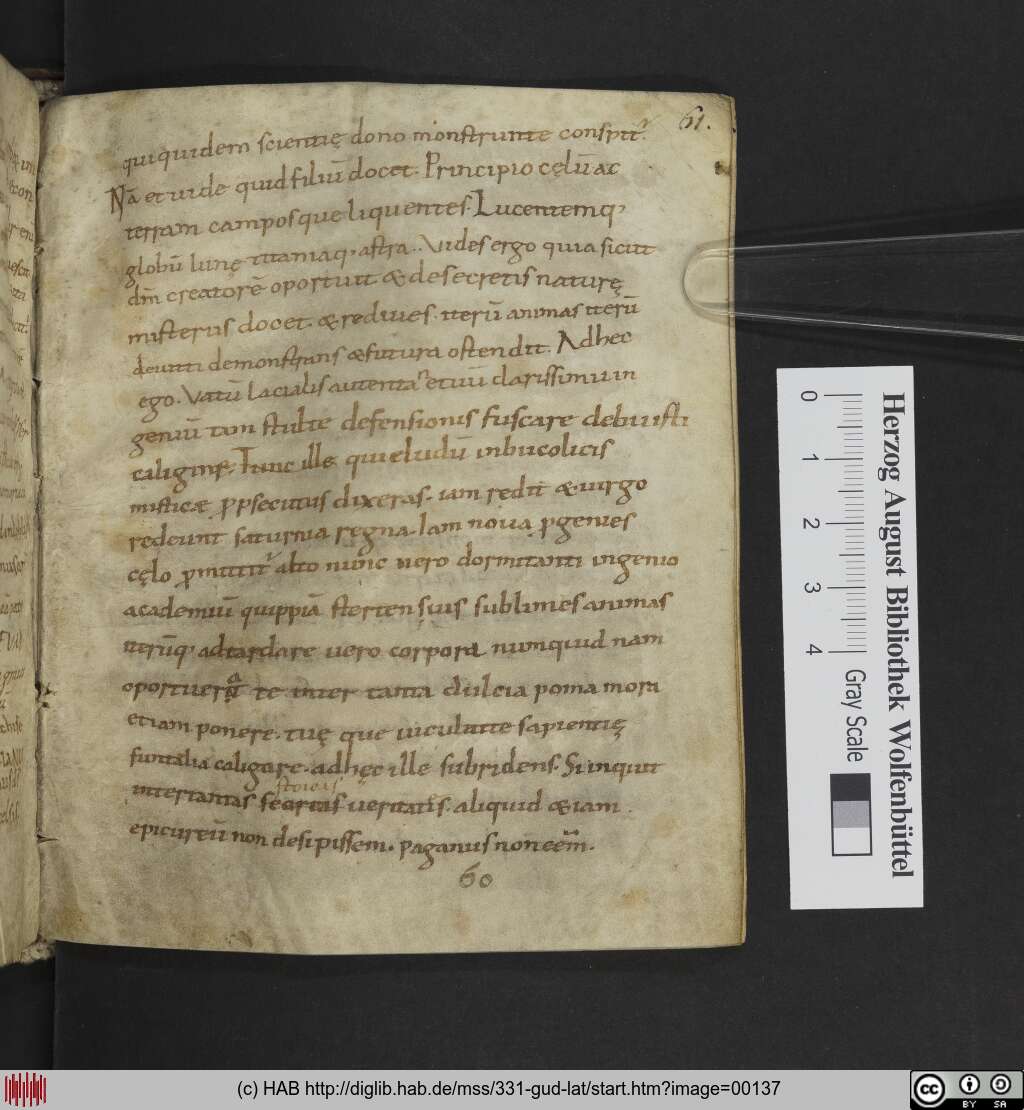 61.
qui quidem scientię dono monstrante conspit͛.
Nā et uide quid filiū docet. Principio cęlū ac
terram camposque liquentes. Lucentemq;
globū lunę titaniaq; astra. Vides ergo quia sicut
dm̄ creatorē oportuit & de secretis naturę
misteriis docet. & rediuies. iterū animas iterū
demonstrans & futura ostendit. Adhec
ego. Vatū lacialis et uū clarissimū in
geniū tam stulte defensionis fuscare debuisti
caligine. Tunc ille qui eludū inbucolicis
misticæ ꝓpsecutus dixeras. iam redit & uirgo
redeunt saturnia regna. Iam noua ꝓgenies
cęlo alto nunc uero dormitanti ingenio
academiū quippiā stertens ius sublimes animas
iterūq; ad tardare uero corpora numquid nam
te inter tanta dulcia poma mora
etiam ponere. tuę que sapientię
funtalia caligare. adhęc ille subridens. Si inquit
stoicas
inter tantas ueritatis. aliquid & iam
epicureū non desipissem. paganus non eēm.
60
0 1 2 3 4
Gray Scale
Herzog August Bibliothek Wolfenbüttel
(c) HAB http://diglib.hab.de/mss/331-gud-lat/start.htm?image=00137
cc BY SA